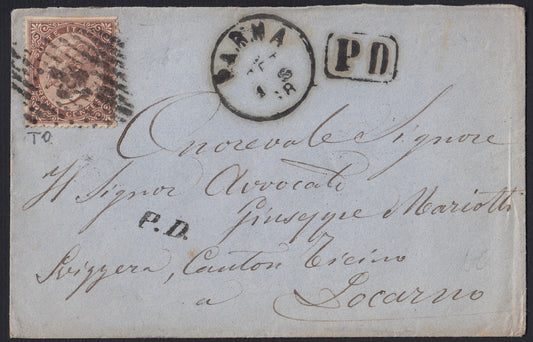 PARMA
P D
TO
Onorevole Signore
Il Signor Avvocato
Giuseppe Mariotti
P.D.
Svizzera, Canton Ticino
a Locarno